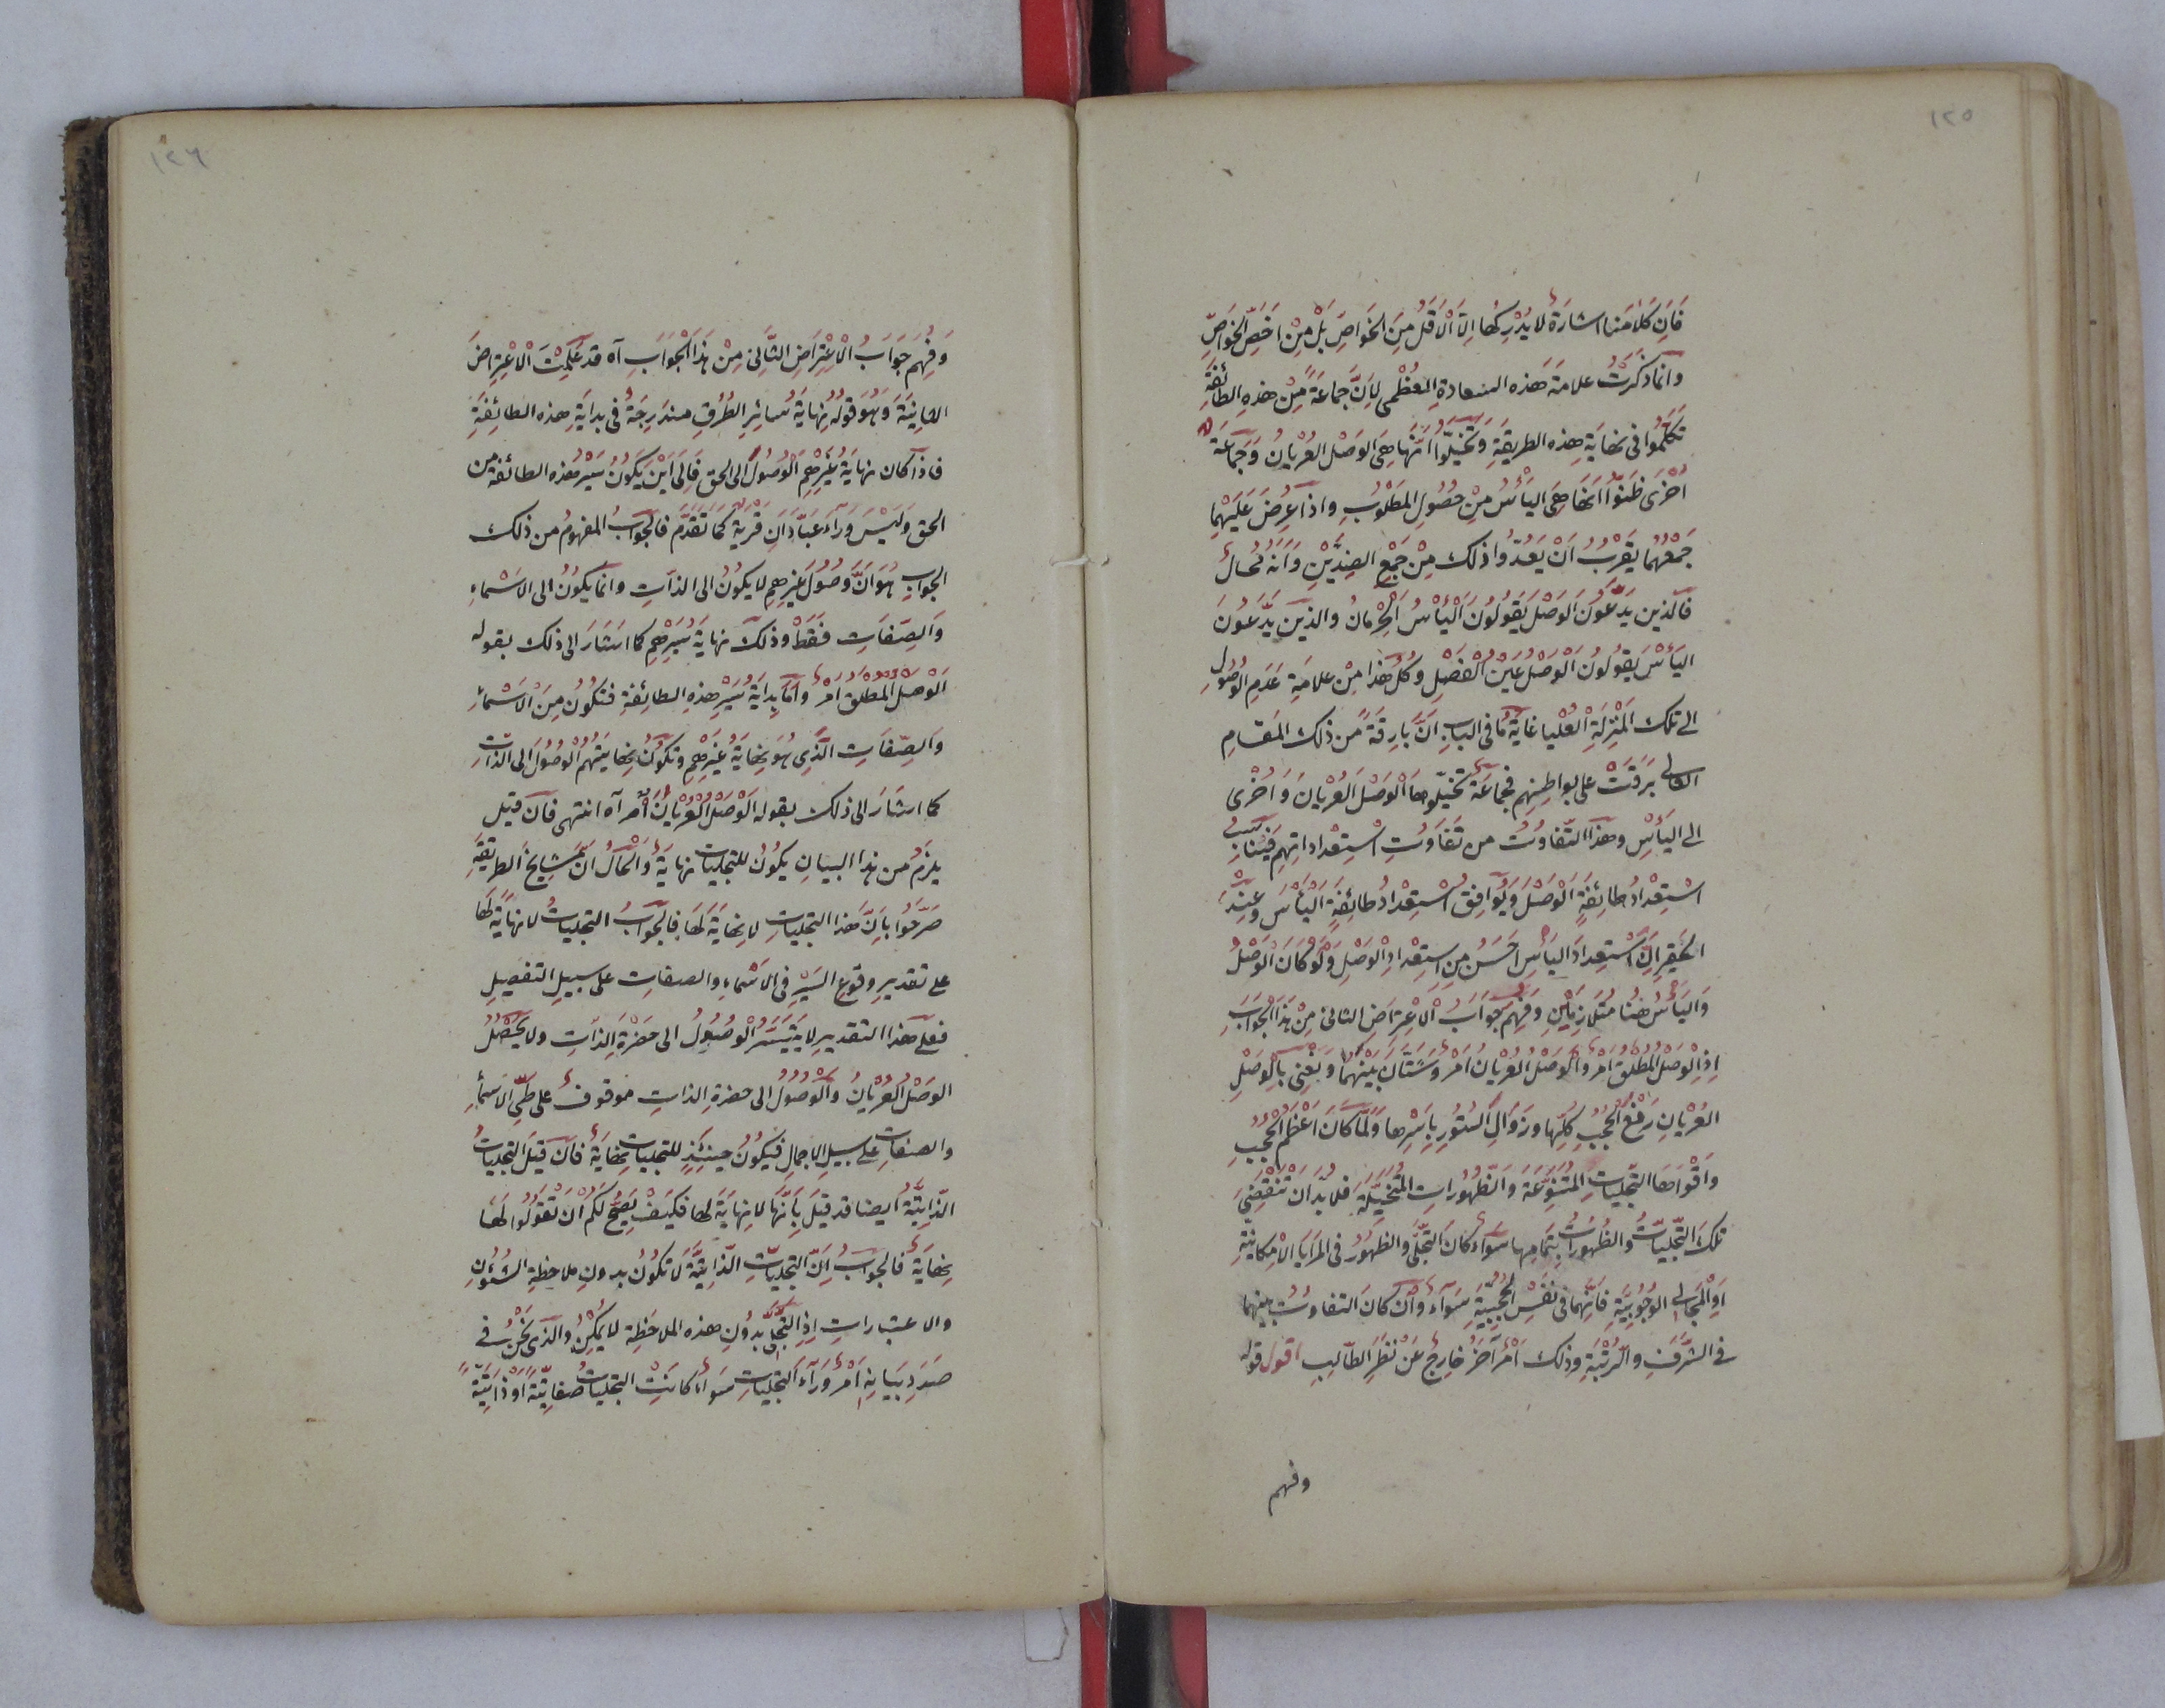 ١٢٥
فَاِنَّ كَلَامَنَا اشارَةٌ لا يُدْرِكُهَا اِلَّا الْاَقَلُّ مِنَ الخَوَاصِّ بَلْ مِنْ اَخَصِّ الْخَوَاصِّ
وانما ذكَرْتُ علامةَ هَذه السَعادةِ العُظْمى لِاَنَّ جماعَةً مِنْ هذهِ الطائِفَةِ
تَكَلَّمُوا فى نهايَةِ هذه الطريقَةِ وَتَخَيَّلُوا اَنَّهَا هِىَ الوَصْل العُرْيانُ وَجَمَاعَةً
اُخْرَى ظَنُّوا اَنَّهَا هِىَ اليَأْسُ مِنْ حُصُولِ المَطْلُوبِ واذا عُرِضَ عَلَيْهِمَا
جَمْعُهُمَا يَقْرُبُ اَنْ يَعُدُّوا ذلك مِنْ جَمْعِ الضِدَّيْنِ وَاَنَّهُ مُحالٌ
فالّذين يَدَّعُونَ الوَصْلَ يَقُولُونَ الْيَأْسُ الحِرْمانُ والذين يَدَّعُونَ
اليَأْسَ يَقُولُونَ الْوَصْلُ عَيْنُ الْفَصْلِ وَكُلُّ هَذَا مِنْ علامَةِ عَدَمِ الْوُصُولِ
الى تلك المَنْزِلَةِ الْعُلْيا غايَةُ مَا فى البابِ اَنَّ بارِقَةً من ذلك المَقَامِ
العالى بَرَقَتْ على بواطِنِهِم فَجَماعَةٌ تَخَيَّلُوهَا الْوَصْلَ العُرْيانَ وَاُخْرَى
الى اليَأْسِ وهذا التَّفاوُت من تَفَاوُتِ اسْتِعْداداتِهِم فَيُنَاسِبُ
اسْتِعْدادُ طائِفَةٍ الْوَصْلَ وَيُوَافِقُ اسْتِعْدادُ طائِفَةٍ الْيَأْسَ وَعِنْدَ
الحَقِيرِ اَنَّ اسْتِعْدادَ اليَأْسِ اَحْسَنُ مِنِ اسْتِعْدادِ الْوَصْلِ وَلَوْ كَانَ الْوَصْلُ
وَاليَأْسُ هُنا مُتَلَازِمَيْنِ وَفُهِمَ جَوَابُ الْاِعْتِراضِ الثانى مِنْ هَذَا الْجَوَابِ
اِذِ الْوَصْلُ الْمُطْلَقُ اَمْرٌ وَالْوَصْلُ العُرْيانُ اَمْرٌ وَشَتَّانَ بَيْنَهُمَا وَنَعْنِى بِالْوَصْلِ
العُرْيانِ رَفْعُ الْحُجُبِ كُلِّهَا وَزَوَالِ السُّتُورِ بِاَسْرِهَا وَلَمَّا كَانَ اَعْظَمُ الْحُجُبِ
وَاَقْوَاهَا التَّجَلِّيَاتِ الْمُتَنَوِّعَةَ وَالظُّهُورَاتِ المُتَخَيَّلَةَ فَلا بُدَّ اَنْ تَنْقَضِىَ
تلكَ التَّجَلِّيَاتُ وَالظُّهُورَاتُ بِتَمَامِهَا سَوَاءً كَانَ التَّجَلِّى وَالظُّهُورُ فى المَرَايَا الْاِمْكانِيَّةِ
اَوِ الْمَجَالِى الوُجُوبِيَّةِ فَاِنَّهُمَا فى نَفْسِ الْحُجُبِيَّةِ سَوَاءٌ وَاِنْ كَانَ التفاوُتُ بينهما
فى الشَّرَفِ وَالرُّتْبَةِ وذلك اَمْرٌ آخَرُ خارِجٌ عَنْ نَظَرِ الطّالِبِ اقول قوله
وفهم
١٢٦
وَفُهِمَ جَوَابُ الْاِعْتِرَاضِ الثَّانِى مِنْ هَذَا الْجَوَابِ آه قد عَلِمْتَ الْاِعْتِرَاضَ
الثانِىَ وَهُوَ قَوْلُهُ نِهَايَةُ سائِرِ الطُّرُقِ مندَرِجَةٌ فى بدايَةِ هذه الطائِفَةِ
فاذا كان نهايَةُ غَيْرِهِمِ الْوُصُولَ الى الحق فَاِلَى اَيْنَ يَكُونُ سَيْرُ هذه الطائفة من
الحق وَلَيْسَ وَرَاءَ عَبَّادَانَ قَرْيَةٌ كَمَا تَقَدَّمَ فالجَوَابُ المفهومُ من ذلك
الجوابِ هُوَ اَنَّ وُصُولَ غَيْرِهِمِ لا يكونُ الى الذاتِ وانما يكونُ الى الاَسْمَاءِ
وَالصِّفَاتِ فَقَطْ وذلك نهايَةُ سَيْرِهِمِ كما اشَارَ الى ذلك بقوله
الوَصْلُ الْمُطْلَقُ اَمْرٌ وَاَمَّا بِدايَةُ سَيْرِ هذِهِ الطائِفةِ فتكُونُ مِنَ الْاَسْمَاءِ
وَالصِّفَاتِ الَّذِى هُوَ نِهَايَةُ غَيْرِهِمِ وَتَكُونُ نِهَايَتُهُمُ الْوُصُولَ الى الذَّاتِ
كما اشارَ الى ذلك بقوله الوَصْلُ الْعُرْيَانُ اَمْر آه انتهى فان قيل
يلزَمُ من هذا البيانِ يكُونُ للتجلياتِ نهايَةٌ وَالْحَالُ اَنَّ مَشايِخَ الطَّرِيقَةِ
صَرَّحُوا بِاَنَّ هَذا التجلياتِ لا نِهايَةَ لَهَا فالجَوَابُ التجليات لا نِهَايَةَ لَهَا
على تقديرِ وقوعِ السَّيْرِ فى الاَسْمَاءِ والصفاتِ على سبيلِ التفصيلِ
فعلى هذا التقديرِ لا يَتَيَسَّرُ الْوُصُولُ الى حضرةِ الذاتِ ولا يَحْصُلُ
الوَصْلُ الْعُرْيانُ وَالْوُصُولُ الى حضرةِ الذاتِ موقوفٌ على طَىِّ الاَسْمَاءِ
والصفاتِ على سبيلِ الاجمالِ فيكُونُ حينئِذٍ للتجلياتِ نهايَةٌ فان قيلَ التجلياتُ
الذَّاتِيَّةُ ايضا قد قيلَ بِاَنَّهَا لا نِهايَةَ لها فكَيْفَ يَصِحُّ لَكُمْ اَنْ تَقُولُوا لها
نِهَايَةٌ فالجوابُ اَنَّ التجلياتِ الذَّاتِيَّةَ لا تكُونُ بدونِ ملاحظةِ الشُئُونِ
والاعتباراتِ اِذِ التَّجَلِّى بِدُونِ هذه الملاحَظةِ لا يُمْكِنُ والَّذى نَحْنُ فى
صَدَدِ بَيَانِهِ اَمْرٌ وَرَاءَ التجلياتِ سَواءً كانَتْ التجلياتُ صفاتِيَّةً اَوْ ذَاتِيَّةً